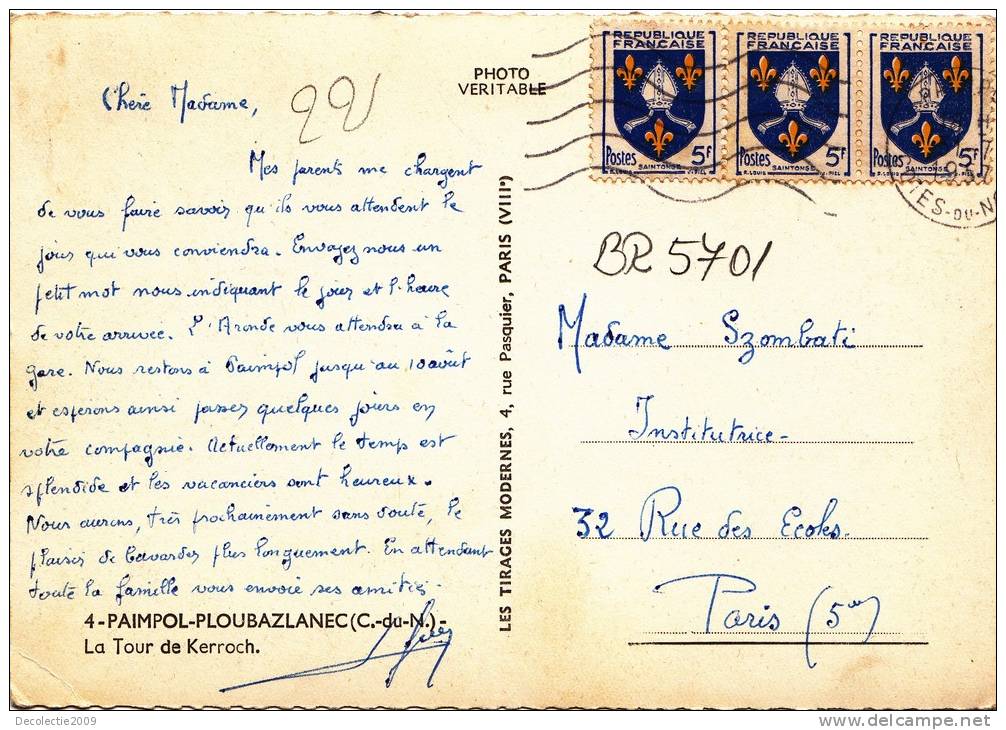 PHOTO
VERITABLE
REPUBLIQUE
FRANÇAISE
Postes 5F
SAINTONGE
REPUBLIQUE
FRANÇAISE
Postes 5F
SAINTONGE
REPUBLIQUE
FRANÇAISE
Postes 5F
SAINTONGE
ES-DU-N
221
Chère Madame,
Mes parents me chargent
de vous faire savoir qu'ils vous attendent le
jour qui vous conviendra. Envoyez nous un
petit mot nous indiquant le jour et l'heure
de votre arrivée. L'Aronde vous attendra à la
gare. Nous restons à Paimpol jusqu'au 10 août
et esperons ainsi passer quelques jours en
votre compagnie. Actuellement le temps est
splendide et les vacanciers sont heureux.
Nous aurons, très prochainement sans doute, le
plaisir de bavarder plus longuement. En attendant
toute la famille vous envoie ses amitiés.
4-PAIMPOL-PLOUBAZLANEC (C.-du-N.)-
La Tour de Kerroch.
LES TIRAGES MODERNES, 4, rue Pasquier, PARIS (VIIIe)
BR 5701
Madame Szombati
Institutrice-
32 Rue des Ecoles.
Paris (5e)
Decolectie2009
www.delcampe.net